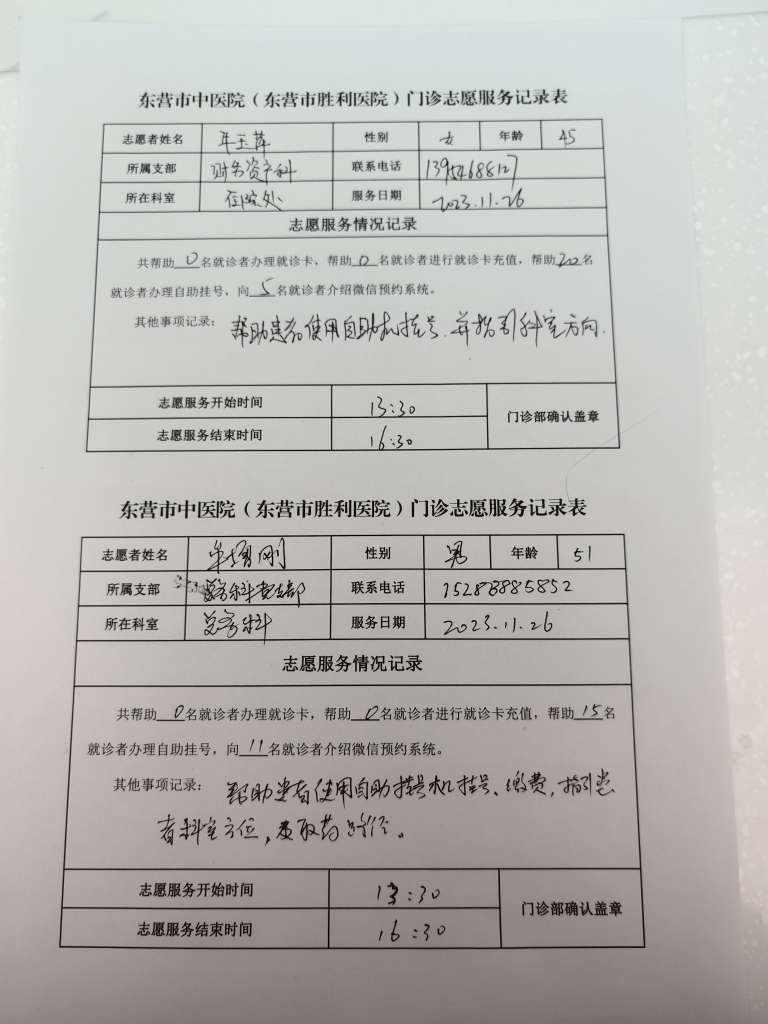 东营市中医院（东营市胜利医院）门诊志愿服务记录表
志愿者姓名 年玉萍 性别 女 年龄 45
所属支部 财务资产科 联系电话
所在科室 住院处 服务日期 2023.11.26
志愿服务情况记录
共帮助0名就诊者办理就诊卡，帮助0名就诊者进行就诊卡充值，帮助20名
就诊者办理自助挂号，向5名就诊者介绍微信预约系统。
其他事项记录：帮助患者使用自助机挂号.并指引科室方向.
志愿服务开始时间 13:30
门诊部确认盖章
志愿服务结束时间 16:30
东营市中医院（东营市胜利医院）门诊志愿服务记录表
志愿者姓名 刚 性别 男 年龄 51
所属支部 总务科党支部 联系电话 15288885852
所在科室 总务科 服务日期 2023.11.26
志愿服务情况记录
共帮助0名就诊者办理就诊卡，帮助0名就诊者进行就诊卡充值，帮助15名
就诊者办理自助挂号，向11名就诊者介绍微信预约系统。
其他事项记录：帮助患者使用自助挂号机挂号、缴费，指引患
者科室方位，及取药路径。
志愿服务开始时间 13:30
门诊部确认盖章
志愿服务结束时间 16:30